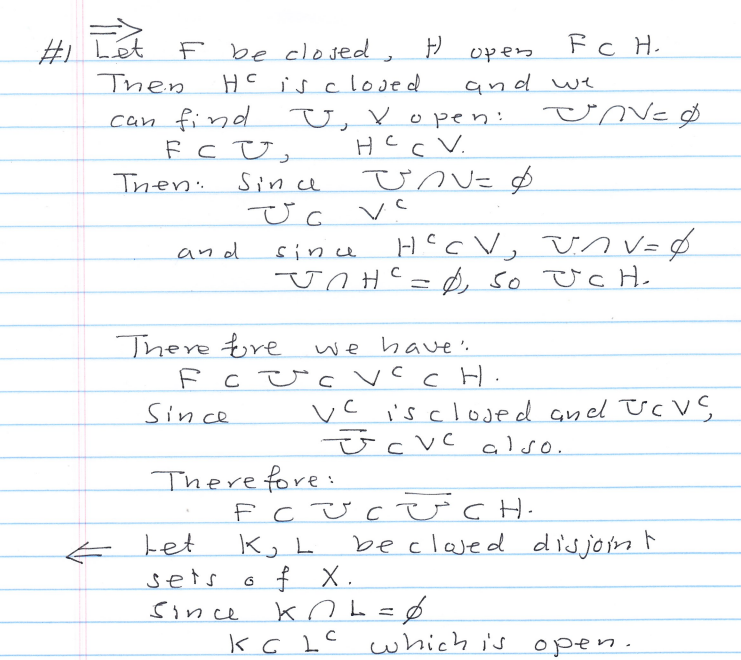 ⇒
#1 Let F be closed, H open F ⊂ H.
Then Hᶜ is closed and we
can find U, V open: U∩V=∅
F ⊂ U, Hᶜ ⊂ V.
Then: Since U∩V=∅
U ⊂ Vᶜ
and since Hᶜ⊂V, U∩V=∅
U∩Hᶜ=∅, so U⊂H.
Therefore we have:
F ⊂ U ⊂ Vᶜ ⊂ H.
Since Vᶜ is closed and U⊂Vᶜ,
U̅ ⊂ Vᶜ also.
Therefore:
F ⊂ U ⊂ U̅ ⊂ H.
⇐ Let K, L be closed disjoint
sets of X.
Since K∩L=∅
K ⊂ Lᶜ which is open.